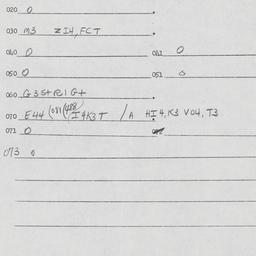 020 0
030 M3 ZI4, FCT
040 0 041 0
050 0 051 0
060 G35+R1G+
070 E44 (081(488 I4K3T / A HI4, K3 V04, T3
071 0
073 0